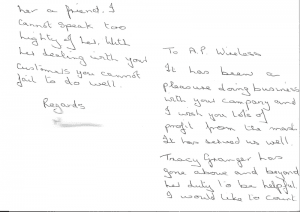 To AP Wireless
It has been a
pleasure doing business
with your company and
I wish you lots of
profit from the mast
It has served us well.
Tracy Granger has
gone above and beyond
her duty to be helpful
I would like to count
her a friend. I
cannot speak too
highly of her. With
her dealing with your
customers you cannot
fail to do well.
Regards